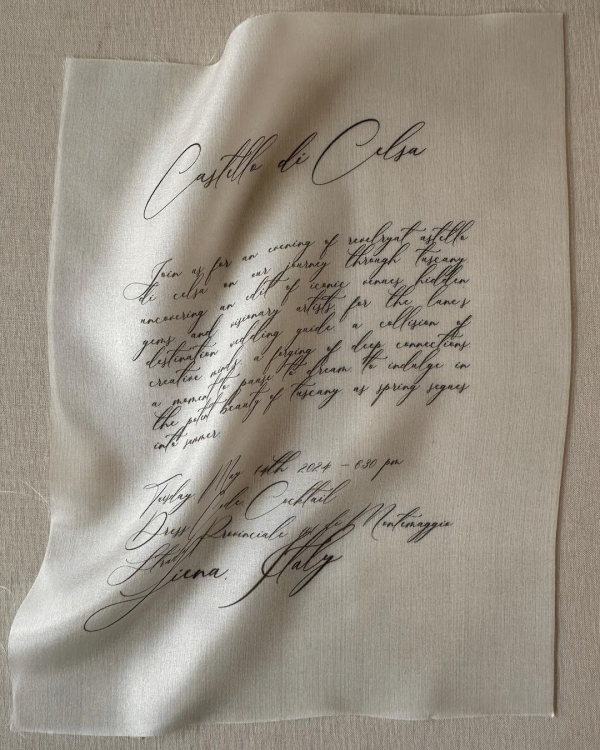 Castello di Celsa
Join us for an evening of revelryat astello
di celsa on our journey through tuscany.
uncovering an edit of iconic venues hidden
gems and visionary artists for the lane's
destination wedding guide a collision of
creative minds, a forging of deep connections
a moment to pause to dream to indulge in
the potent beauty of tuscany as spring segues
into summer.
Tuesday May 14th 2024 – 630 pm
Dress Code Cocktail
Strada Provinciale di Montemaggio
Siena, Italy